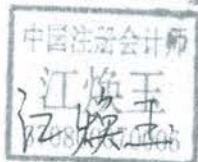 中国注册会计师
江焕王
江焕王